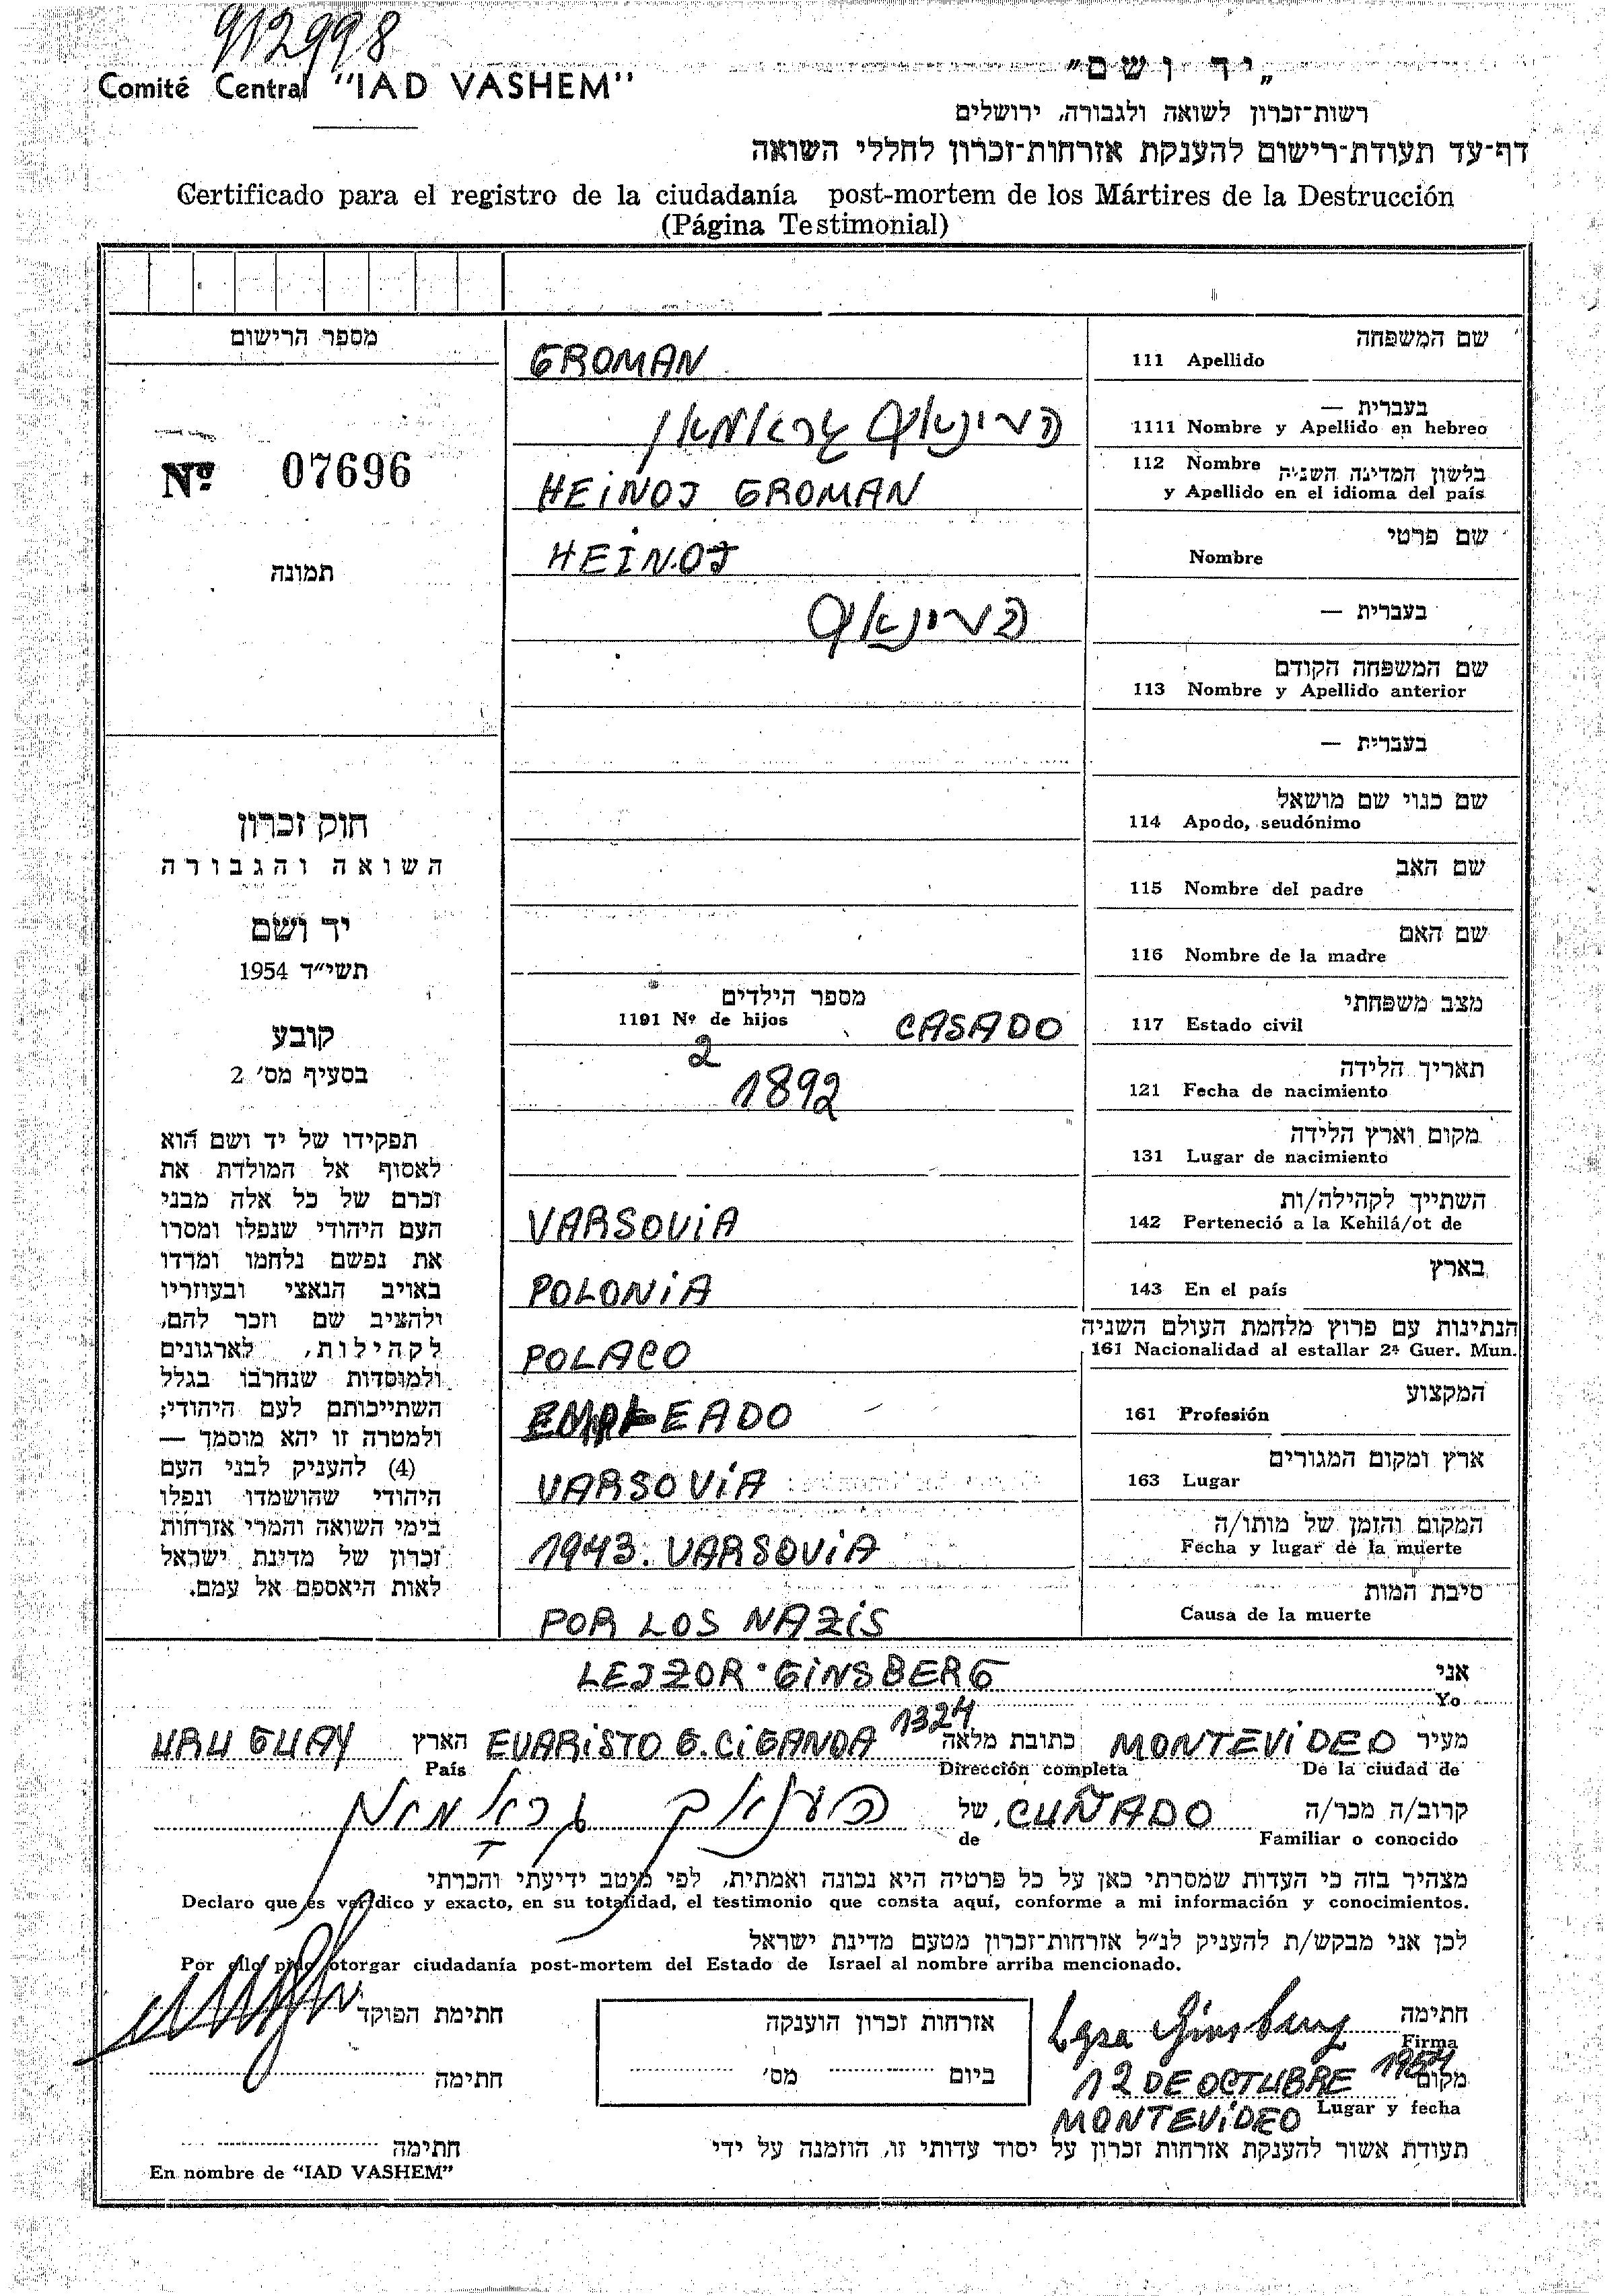 912998
Comité Central "IAD VASHEM"
„יד ושם"
רשות־זכרון לשואה ולגבורה, ירושלים
דף־עד תעודת־רישום להענקת אזרחות־זכרון לחללי השואה
Certificado para el registro de la ciudadanía post-mortem de los Mártires de la Destrucción
(Página Testimonial)
מספר הרישום
Nº 07696
תמונה
חוק זכרון
השואה והגבורה
יד ושם
תשי"ד 1954
קובע
בסעיף מס' 2
תפקידו של יד ושם הוא
לאסוף אל המולדת את
זכרם של כל אלה מבני
העם היהודי שנפלו ומסרו
את נפשם נלחמו ומרדו
באויב הנאצי ובעוזריו
ולהציב שם וזכר להם,
לקהילות, לארגונים
ולמוסדות שנחרבו בגלל
השתייכותם לעם היהודי;
ולמטרה זו יהא מוסמך —
(4) להעניק לבני העם
היהודי שהושמדו ונפלו
בימי השואה והמרי אזרחות
זכרון של מדינת ישראל
לאות היאספם אל עמם.
שם המשפחה
111 Apellido
GROMAN
בעברית —
1111 Nombre y Apellido en hebreo
גראמאן
בלשון המדינה השניה
112 Nombre y Apellido en el idioma del país
HEINOJ GROMAN
שם פרטי
Nombre
HEINOJ
בעברית —
שם המשפחה הקודם
113 Nombre y Apellido anterior
בעברית —
שם כנוי שם מושאל
114 Apodo, seudónimo
שם האב
115 Nombre del padre
שם האם
116 Nombre de la madre
מצב משפחתי
117 Estado civil
CASADO
מספר הילדים
1191 Nº de hijos
2
תאריך הלידה
121 Fecha de nacimiento
1892
מקום וארץ הלידה
131 Lugar de nacimiento
השתייך לקהילה/ות
142 Perteneció a la Kehilá/ot de
VARSOVIA
בארץ
143 En el país
POLONIA
הנתינות עם פרוץ מלחמת העולם השניה
161 Nacionalidad al estallar 2ª Guer. Mun.
POLACO
המקצוע
161 Profesión
EMPLEADO
ארץ ומקום המגורים
163 Lugar
VARSOVIA
המקום והזמן של מותו/ה
Fecha y lugar de la muerte
1943. VARSOVIA
סיבת המות
Causa de la muerte
POR LOS NAZIS
אני LEJZOR GINSBERG
Yo
מעיר MONTEVIDEO כתובת מלאה EVARISTO G. CIGANDA 1324 הארץ URUGUAY
De la ciudad de Dirección completa País
קרוב/ה מכר/ה CUÑADO של גראמאן
Familiar o conocido de
מצהיר בזה כי העדות שמסרתי כאן על כל פרטיה היא נכונה ואמתית, לפי מיטב ידיעתי והכרתי
Declaro que es verídico y exacto, en su totalidad, el testimonio que consta aquí, conforme a mi información y conocimientos.
לכן אני מבקש/ת להעניק לנ"ל אזרחות־זכרון מטעם מדינת ישראל
Por ello pido otorgar ciudadanía post-mortem del Estado de Israel al nombre arriba mencionado.
חתימה
Firma
Ginsberg
מקום
Lugar y fecha
12 DE OCTUBRE 1954
MONTEVIDEO
אזרחות זכרון הוענקה
ביום מס'
חתימת הפוקד
חתימה
תעודת אשור להענקת אזרחות זכרון על יסוד עדותי זו, הוזמנה על ידי
חתימה
En nombre de "IAD VASHEM"